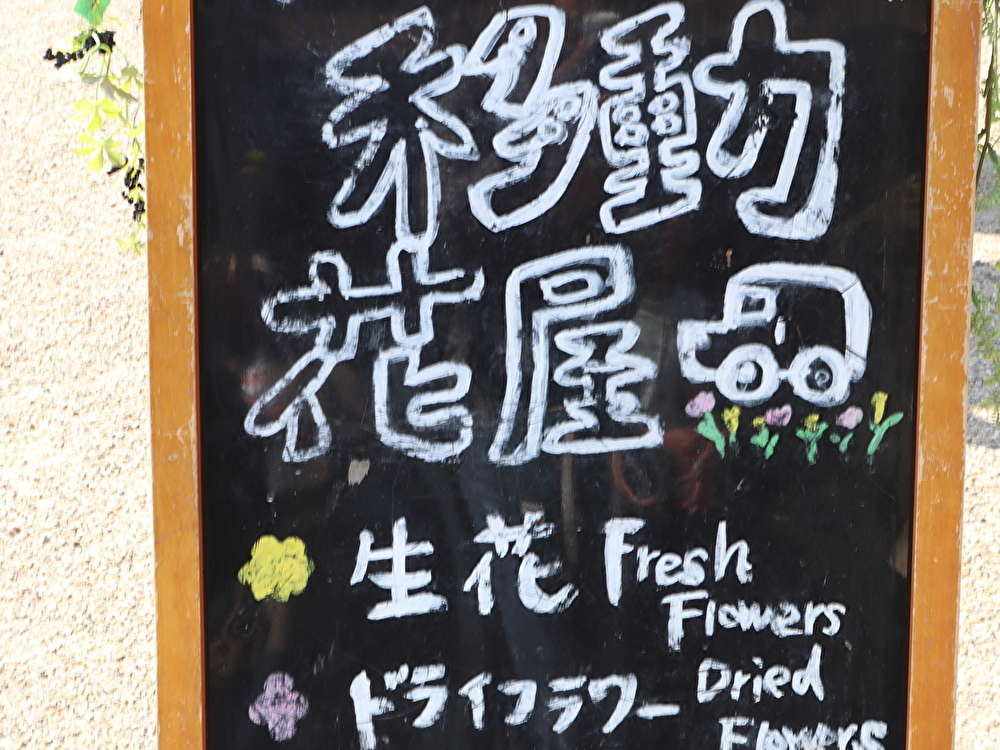 移動
花屋
生花 Fresh Flowers
ドライフラワー Dried Flowers